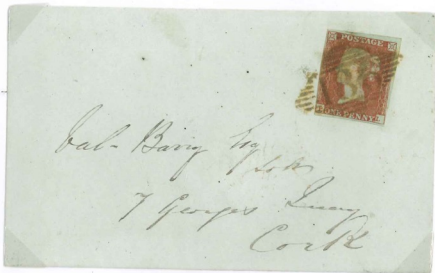 POSTAGE
ONE PENNY
Val- Barry Esq
Solr
7 Georges Quay
Cork